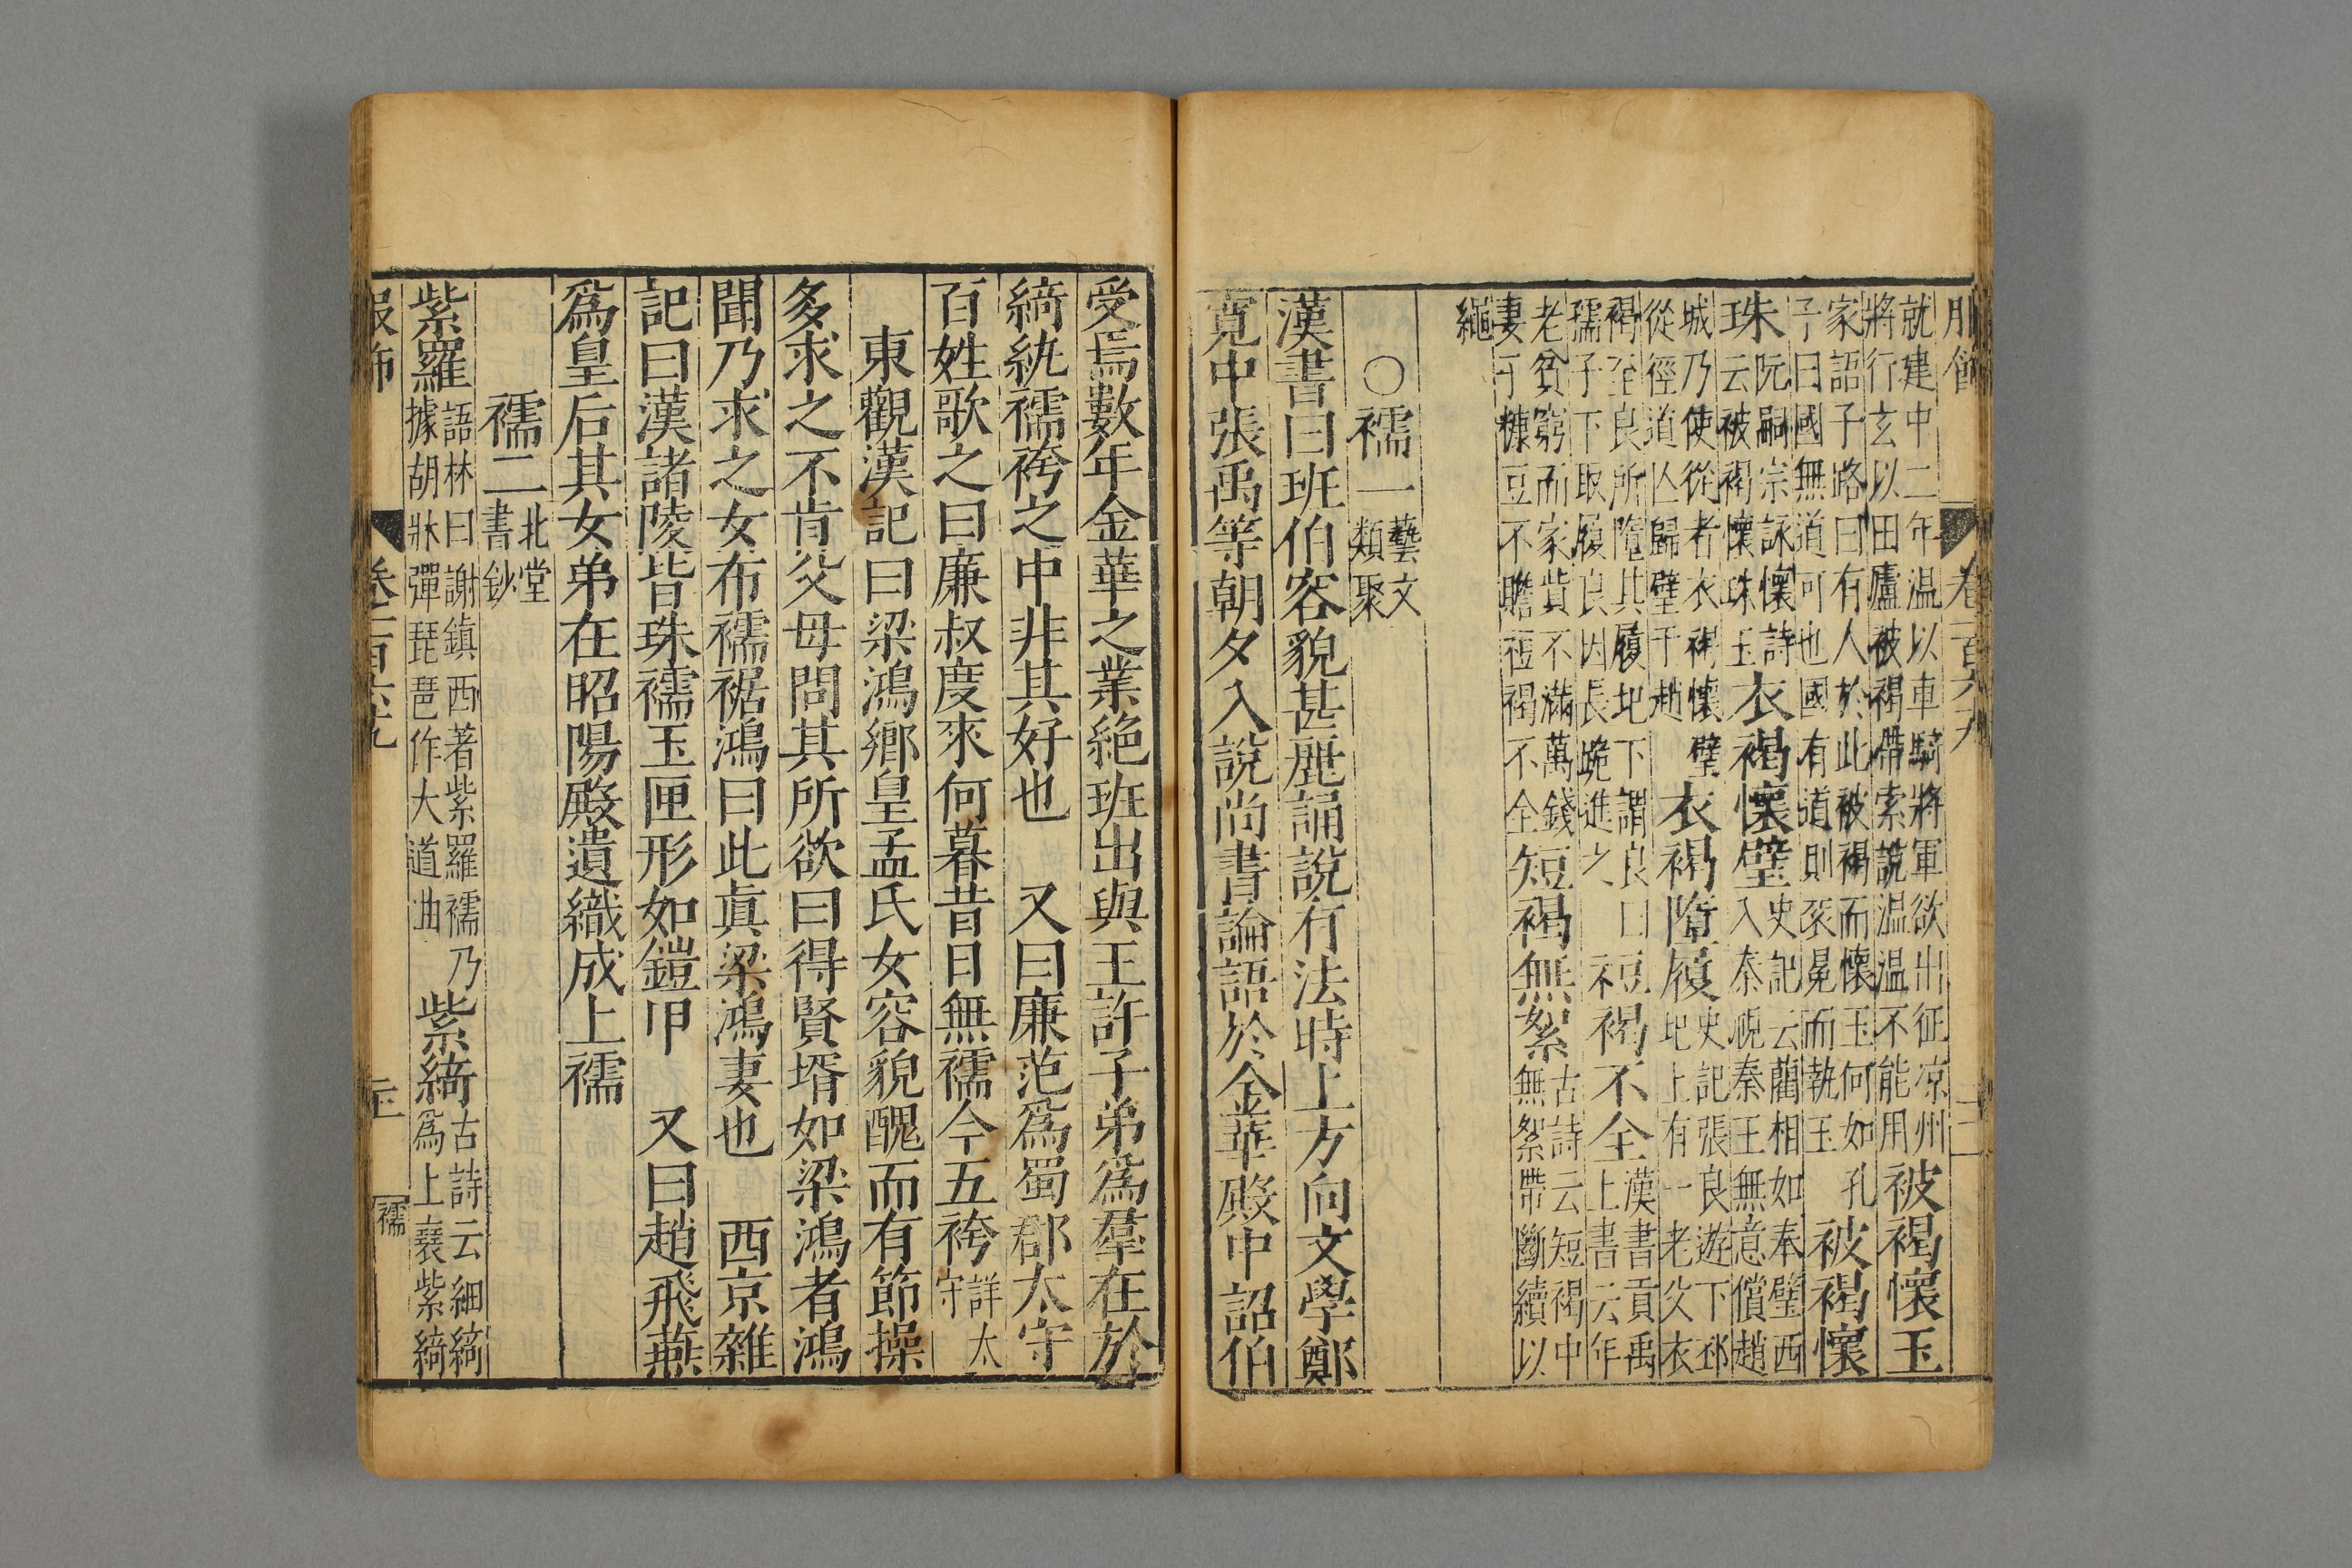 服飾 卷一百六九
就建中二年温以車騎將軍欲出征凉州
將行玄以田廬被褐帶索說温温不能用
被褐懷玉
家語子路曰有人於此被褐而懷玉何如孔
子曰國無道可也國有道則衮冕而執玉
被褐懷
珠
阮嗣宗詠懷詩
云被褐懷珠玉
衣褐懷璧
史記云藺相如奉璧西
入秦視秦王無意償趙
城乃使從者衣褐懷璧
從徑道亾歸璧于趙
衣褐墮履
史記張良遊下邳
圯上有一老父衣
褐至良所墮其履圯下謂良曰
孺子下取履良因長跪進之
裋褐不全
漢書貢禹
上書云年
老貧窮而家貲不滿萬錢
妻子糠豆不贍裋褐不全
短褐無絮
古詩云短褐中
無絮帶斷續以
繩
○襦一
藝文
類聚
漢書曰班伯容貌甚麗誦說有法時上方向文學鄭
寛中張禹等朝夕入說尚書論語於金華殿中詔伯
受焉數年金華之業絶班出與王許子弟爲羣在於
綺紈襦袴之中非其好也 又曰廉范爲蜀郡太守
百姓歌之曰廉叔度來何暮昔日無襦今五袴
詳太
守
東觀漢記曰梁鴻鄉皇孟氏女容貌醜而有節操
多求之不肯父母問其所欲曰得賢壻如梁鴻者鴻
聞乃求之女布襦裾鴻曰此眞梁鴻妻也 西京雜
記曰漢諸陵皆珠襦玉匣形如鎧甲 又曰趙飛燕
爲皇后其女弟在昭陽殿遺織成上襦
襦二
北堂
書鈔
紫羅
語林曰謝鎮西著紫羅襦乃
據胡牀彈琵琶作大道曲
紫綺
古詩云細綺
爲上蕤紫綺
服飾 卷一百六九 襦